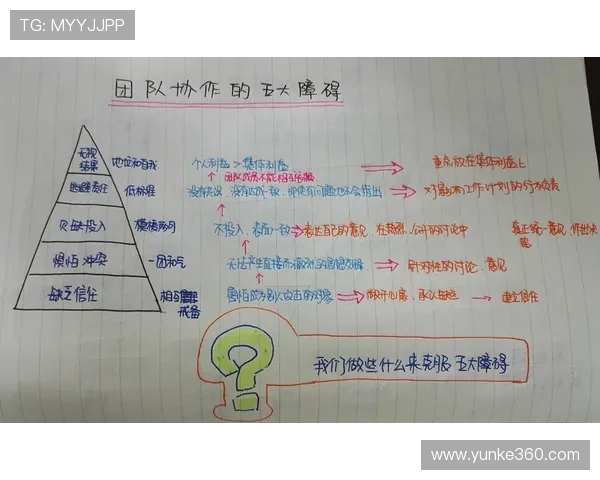 TG: MYYJJPP
团队协作的五大障碍
无视结果 地位和自我 个人利益 > 集体利益 重点放在集体利益上
团队成员不能相互
逃避责任 低标准 对影响工作计划的行为负责
缺乏投入 模棱两可 不投入，表面一致 表达自己的意见，在热烈、公开的讨论中 真正统一意见，作出决策
惧怕冲突 一团和气 无法产生直接而激烈的思想交锋 针对性的讨论、意见
缺乏信任 相互 戒备 害怕成为别人攻击的对象 敞开心扉，承认 建立信任
我们做些什么来克服五大障碍
www.yunke360.com